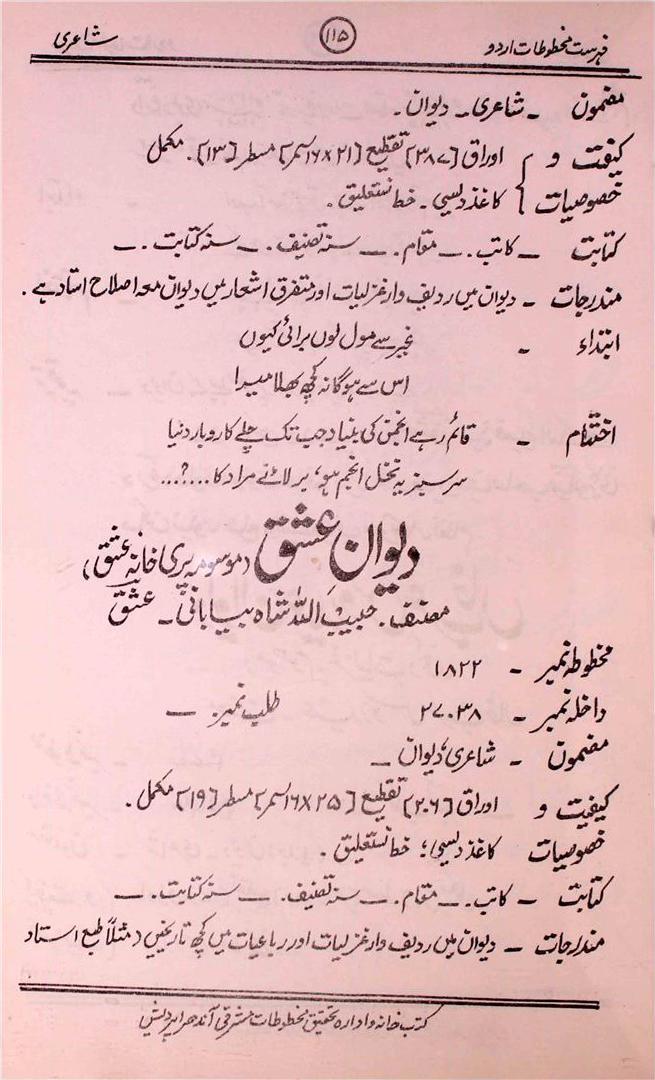 فہرست مخطوطات اردو ۱۱۵ شاعری
مضمون ۔ شاعری ۔ دیوان ۔
کیفت و اوراق [۳۸۷] تقطیع [۲۱×۱۶ سمر] مسطر [۱۳]۔ مکمل
خصوصیات کاغذ دیسی ۔ خط نستعلیق ۔
کتابت ۔ کاتب ۔ــ مقام ۔ــ سنہ تصنیف ۔ــ سنہ کتابت ۔ــ
مندرجات ۔ دیوان میں ردیف وار غزلیات اور متفرق اشعار ہیں دیوان معہ اصلاح استاد ہے ۔
ابتداء ۔ غیر سے مول لوں برائی کیوں
اس سے ہوگا نہ کچھ بھلا میرا
اختتام ۔ قائم رہے انجمن کی بنیاد جب تک چلے کاروبار دنیا
سرسبز یہ نخل انجم ہو، بر لائے مراد کا ...؟...
دیوان عشق (موسومہ پری خانۂ عشق)
مصنف ۔ حبیب اللہ شاہ بیابانی ۔ عشق
مخطوطہ نمبر ۔ ۱۸۲۲
داخلہ نمبر ۔ ۲۷۰۳۸ طلب نمبر ۔ــ
مضمون ۔ شاعری، دیوان ۔
کیفیت و اوراق [۲۰۶] تقطیع [۲۵×۱۶ سمر] مسطر [۱۹] مکمل ۔
خصوصیات کاغذ دیسی؛ خط نستعلیق ۔
کتابت ۔ کاتب ۔ــ مقام ۔ــ سنہ تصنیف ۔ــ سنہ کتابت ۔ــ
مندرجات ۔ دیوان میں ردیف وار غزلیات اور رباعیات ہیں کچھ تاریخیں (مثلاً طبع استاد
کتب خانہ و ادارہ تحقیق مخطوطات مشرقی آندھرا پردیش